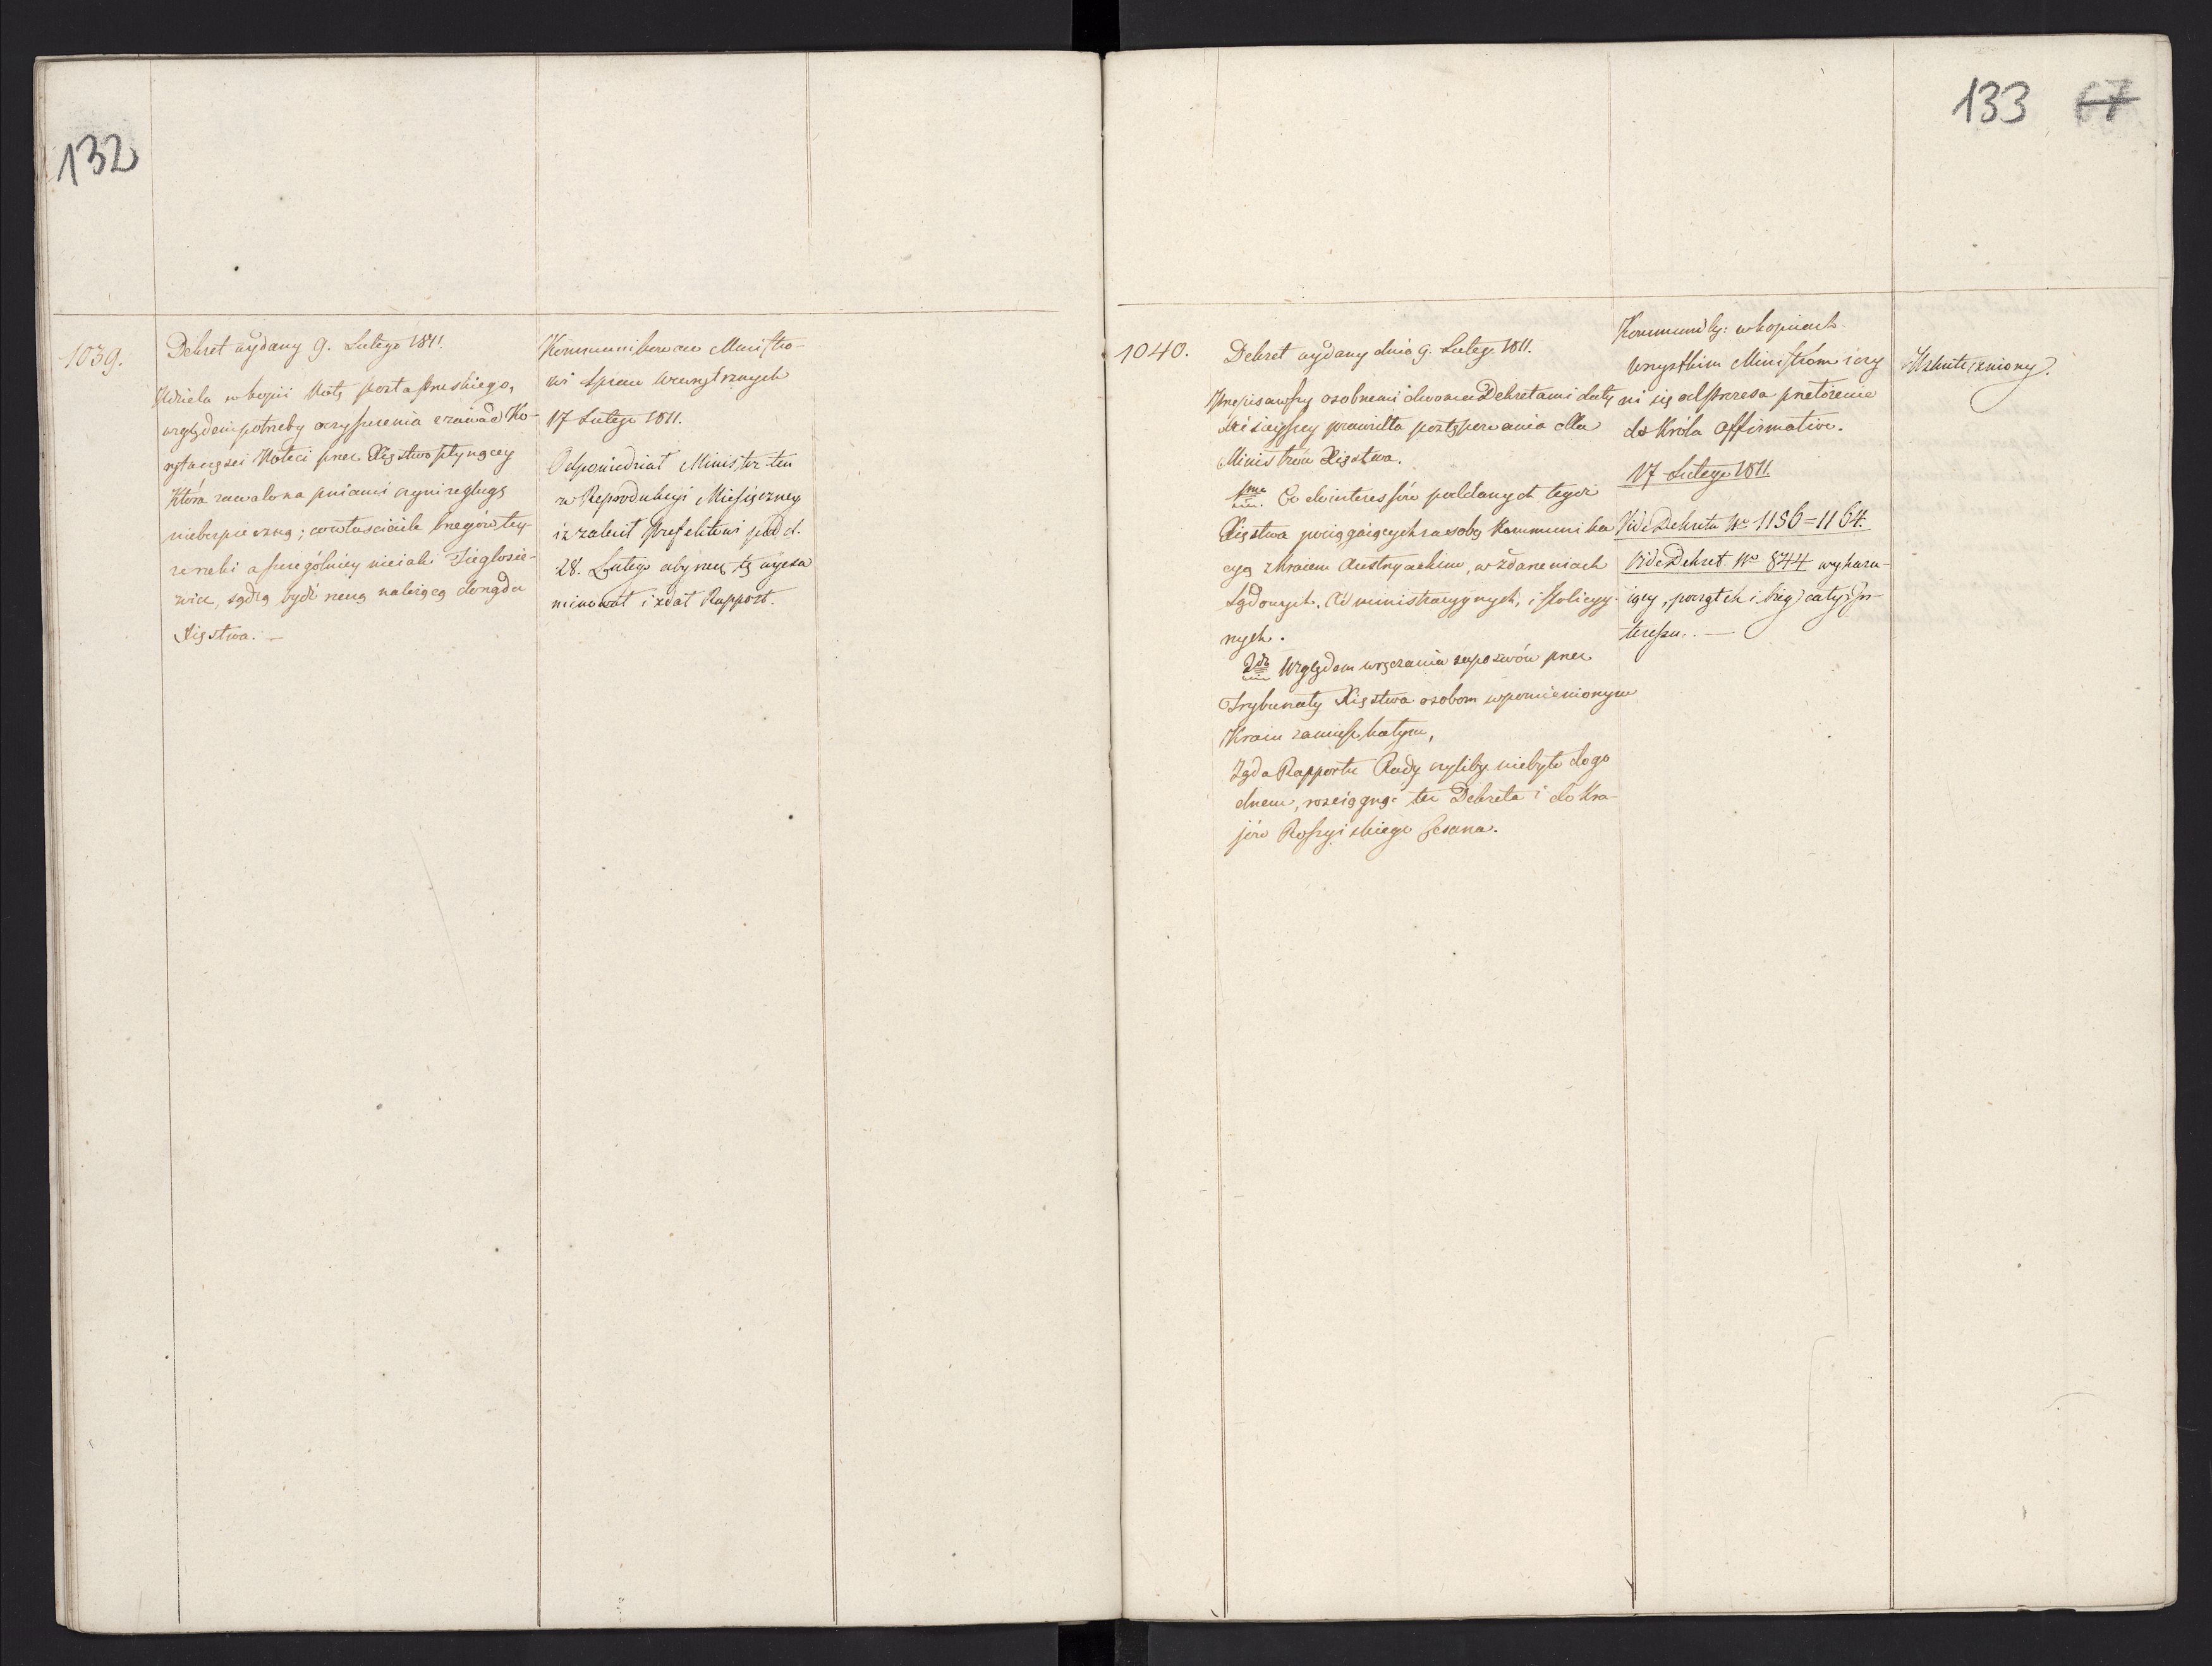 132
1039.
Dekret wydany 9. Lutego 1811.
Udziela w kopii Notę posła pruskiego,
względem potrzeby oczyszczenia z zawad Ko-
ryta części Noteci przez Xięstwo płynącey
która zawalona pniami czyni żeglugę
niebezpieczną; co właściciele brzegów tey-
że rzeki a szczególniey nieiaki
sądzą bydź rzeczą należącą do rządu
Xięstwa. —
Kommunikowano Ministro-
wi Spraw Wewnętrznych
17 Lutego 1811.
Odpowiedział Minister ten
w Reprodukcyi Miesięczney
iż zalecił Prefektowi pod d.
28. Lutego aby rzecz tę wyexa
minował i zdał Rapport.
133 67
1040.
Dekret wydany dnia 9. Lutego 1811.
Przepisawszy osobnemi dwoma Dekretami daty
dzisieyszey prawidła postępowania dla
Ministrów Xięstwa.
1mo Co do interessów poddanych tegoż
Xięstwa pociągaiących za sobą Kommunika
cyą z kraiem Austryackim, w zdarzeniach
Sądowych, Administracyynych, i Policyy-
nych.
2do Względem wręczania zapozwów przez
Trybunały Xięstwa osobom w pomienionym
Kraiu zamieszkałym,
Żąda Rapportu Rady czyliby niebyło dogo
dnem, rozciągnąć te Dekreta i do Kra-
jów Rossyiskiego Cesarza.
Kommunik: w kopiach
wszystkim Ministrom i czy
ni się od Prezesa przełożenie
do Króla affirmative.
17 Lutego 1811.
Vide Dekreta No 1156=1164.
Vide Dekret No 844 wykazu-
iący, początek i bieg całego In-
teressu. —
Uskuteczniony.